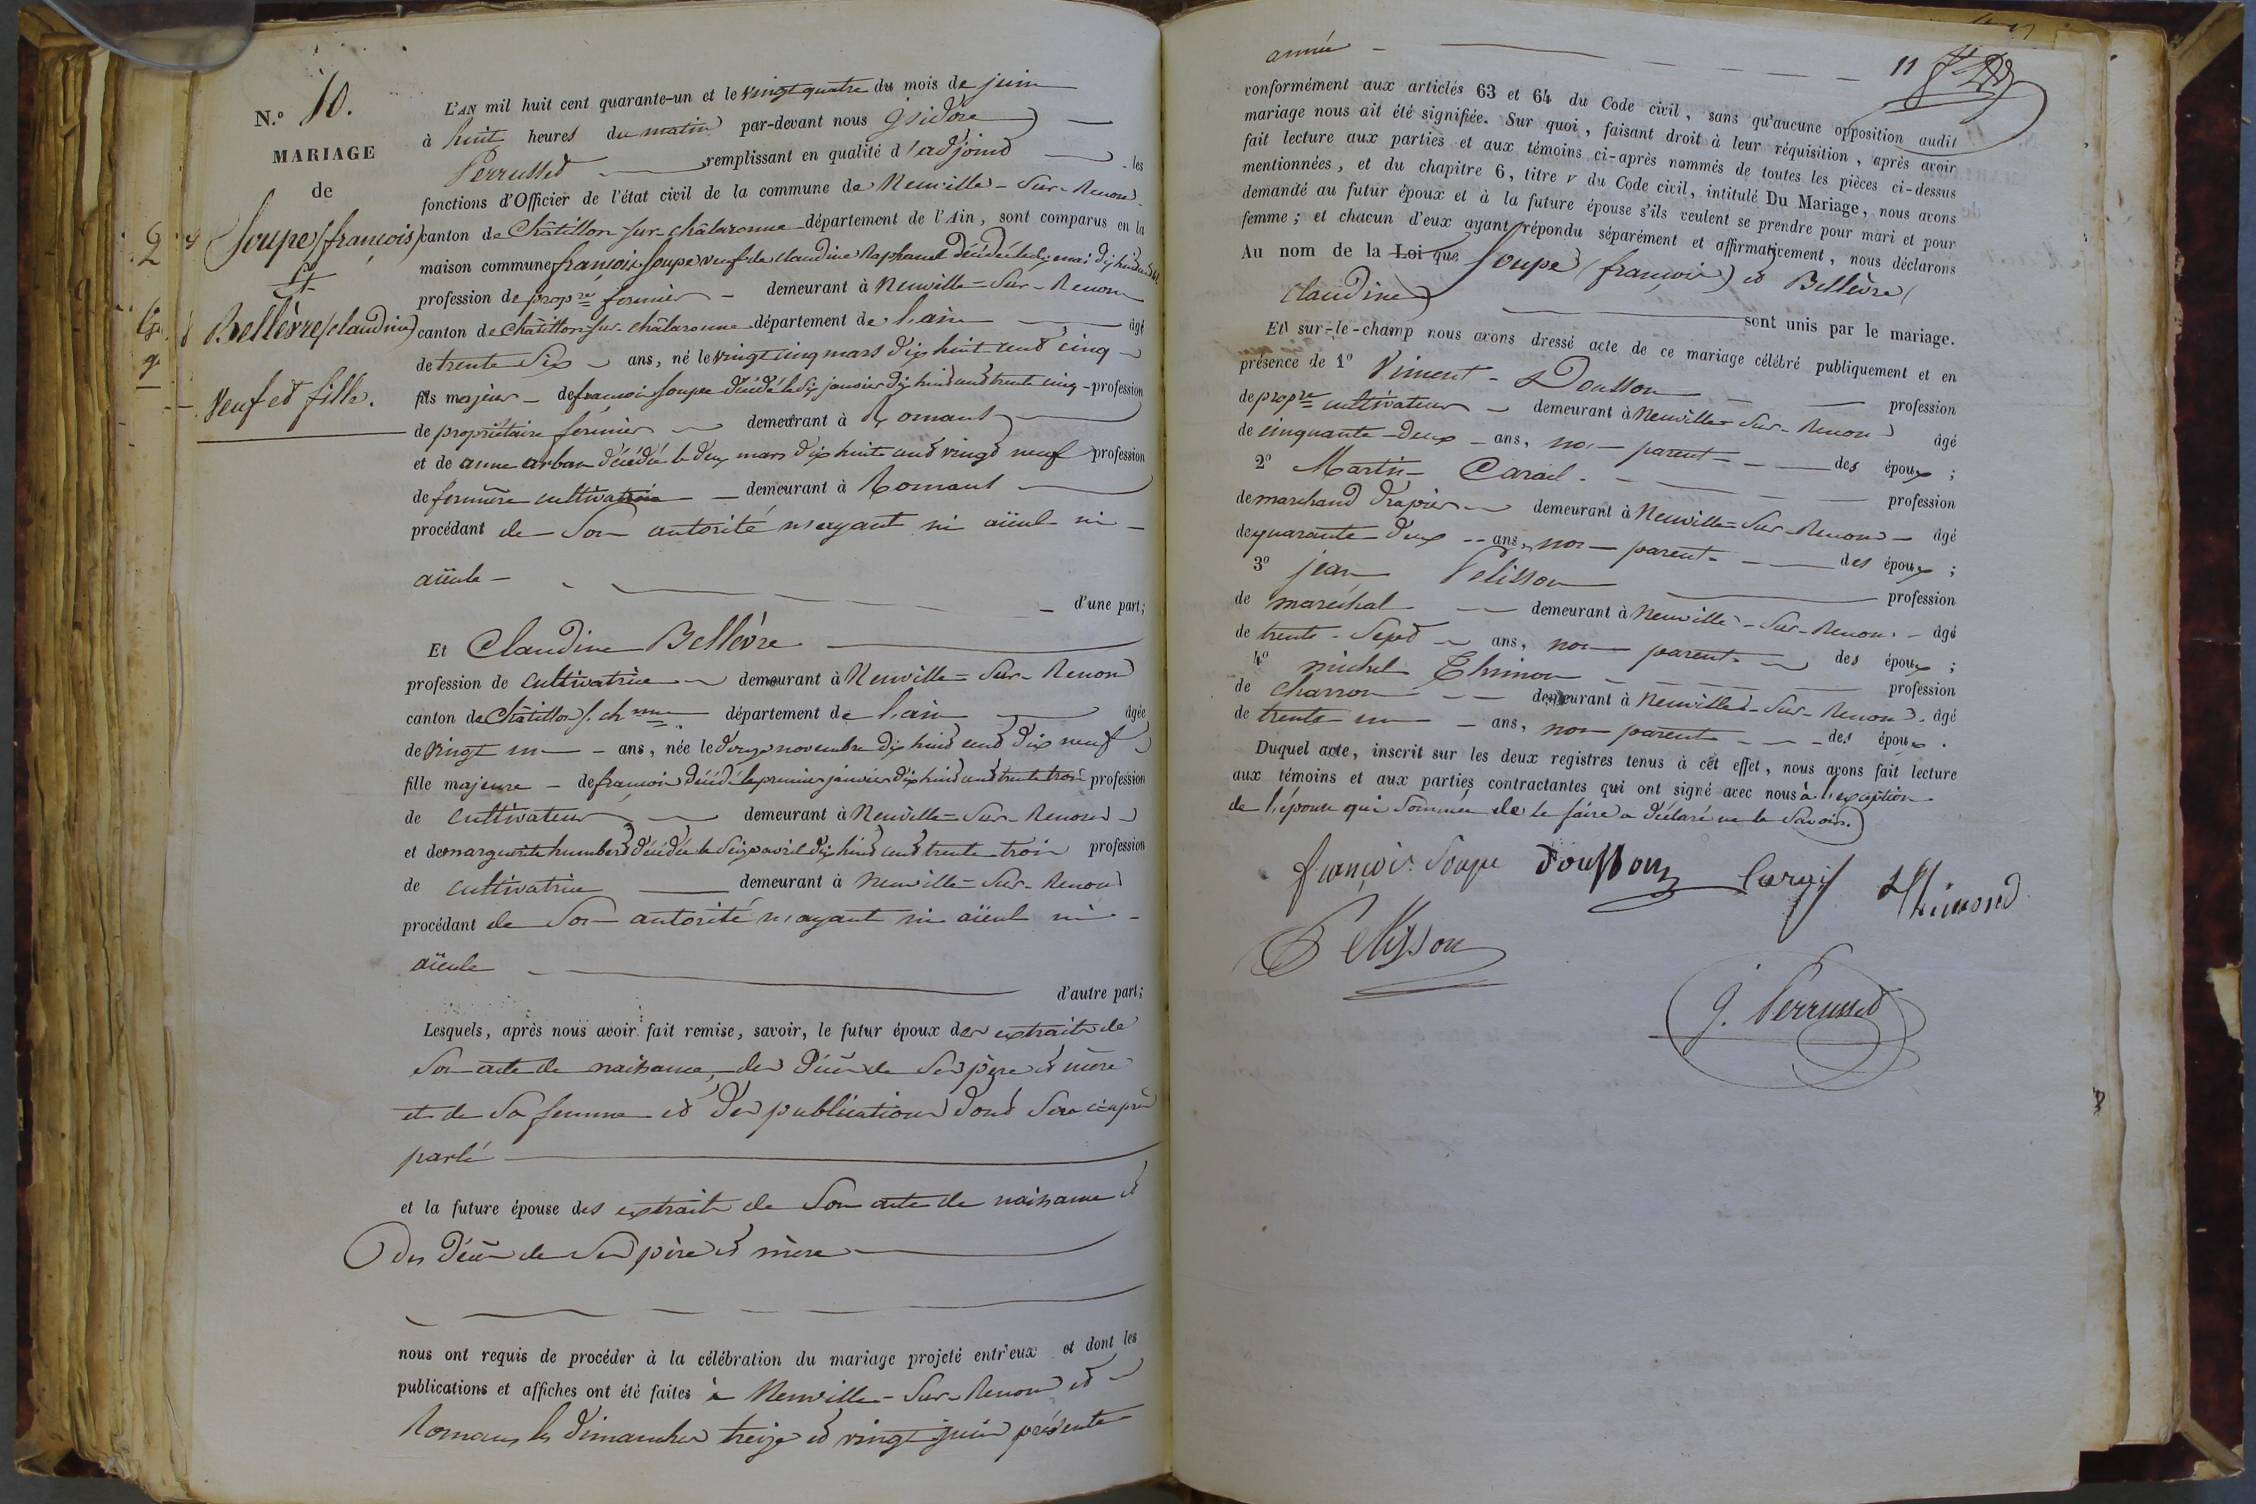 N.º 10.
MARIAGE
de
Soupe (françois)
et
Bellèvre (claudine)
Veuf et fille.
L'AN mil huit cent quarante-un et le vingt quatre du mois de juin
à huit heures du matin par-devant nous isidore
Perrusset remplissant en qualité d'adjoint les
fonctions d'Officier de l'état civil de la commune de Neuville-sur-Renon
canton de Châtillon sur châlaronne département de l'Ain, sont comparus en la
maison commune françois Soupe veuf de claudine Raphanel décédée le mai dix huit cent
profession de propre fermier demeurant à Neuville-sur-Renon
canton de châtillon sur châlaronne département de l'ain âgé
de trente Six ans, né le vingt cinq mars dix huit cent cinq
fils majeur de françois Soupe décédé le janvier dix huit cent trente cinq profession
de propriétaire fermier demeurant à Romans
et de anne arban décédée le deux mars dix huit cent vingt neuf profession
de fermière cultivatrice demeurant à Romans
procédant de son autorité n'ayant ni aïeul ni
aïeule
d'une part;
Et Claudine Bellèvre
profession de cultivatrice demeurant à Neuville-sur-Renon
canton de Châtillon s. ch nne département de l'ain âgée
de vingt un ans, née le novembre dix huit cent dix neuf
fille majeure de françois décédé le premier janvier dix huit cent trente trois profession
de cultivateur demeurant à Neuville-sur-Renon
et de marguerite humbert décédée le Seize avril dix huit cent trente trois profession
de cultivatrice demeurant à Neuville-sur-Renon
procédant de son autorité n'ayant ni aïeul ni
aïeule
d'autre part;
Lesquels, après nous avoir fait remise, savoir, le futur époux des extraits de
son acte de naissance, des décès de ses père et mère
et de sa femme et des publications dont sera ci après
parlé
et la future épouse des extraits de son acte de naissance et
des décès de ses père et mère
nous ont requis de procéder à la célébration du mariage projeté entr'eux et dont les
publications et affiches ont été faites à Neuville-sur-Renon et
Romans les dimanches treize et vingt juin présente
11
année
conformément aux articles 63 et 64 du Code civil, sans qu'aucune opposition audit
mariage nous ait été signifiée. Sur quoi, faisant droit à leur réquisition, après avoir
fait lecture aux parties et aux témoins ci-après nommés de toutes les pièces ci-dessus
mentionnées, et du chapitre 6, titre V du Code civil, intitulé Du Mariage, nous avons
demandé au futur époux et à la future épouse s'ils veulent se prendre pour mari et pour
femme; et chacun d'eux ayant répondu séparément et affirmativement, nous déclarons
Au nom de la Loi que Soupe (françois) et Bellèvre (
claudine)
sont unis par le mariage.
Et sur-le-champ nous avons dressé acte de ce mariage célébré publiquement et en
présence de 1º Vincent Dousson profession
de propre cultivateur demeurant à Neuville-sur-Renon âgé
de cinquante-deux ans, non parent des époux;
2º Martin profession
de marchand drapier demeurant à Neuville-sur-Renon âgé
de quarante deux ans, non parent des époux;
3º jean Pelisson profession
de maréchal demeurant à Neuville-sur-Renon âgé
de trente-Sept ans, non parent des époux;
4º michel Thimon profession
de charron demeurant à Neuville-sur-Renon âgé
de trente un ans, non parent des époux.
Duquel acte, inscrit sur les deux registres tenus à cet effet, nous avons fait lecture
aux témoins et aux parties contractantes qui ont signé avec nous à l'exception
de l'épouse qui Sommée de le faire a déclaré ne le Savoir.
françois Soupe Dousson Thimond
Pelisson
J. Perrusset